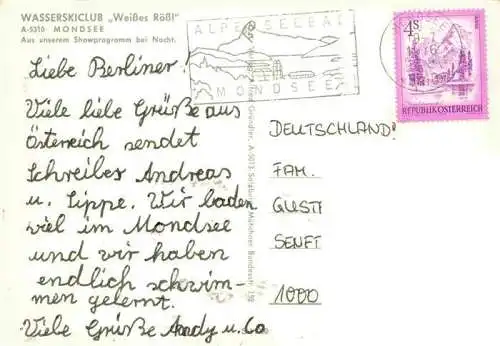 WASSERSKICLUB „Weißes Rößl"
A-5310 MONDSEE
Aus unserem Showprogramm bei Nacht.
Liebe Berliner!
Viele liebe Grüße aus
Österreich sendet
Schreiber Andreas
u. Sippe. Wir baden
viel im Mondsee
und wir haben
endlich schwim-
men gelernt.
Viele Grüße Andy u. Co
ALPENSEEBAD
MONDSEE
4S
REPUBLIK ÖSTERREICH
DEUTSCHLAND!
FAM.
GUSTI
SENFT
1000